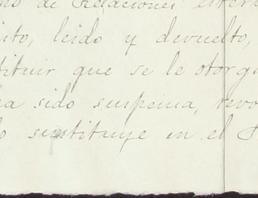 no de Relaciones Exter
ito, leido y devuelto,
tituir que se le otorg
ha sido suspensa, revo
lo sustituye en el